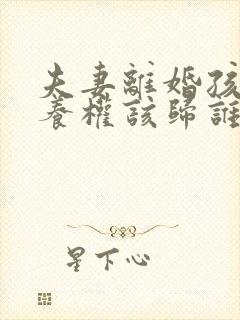 夫妻離婚孩
養權該歸誰
星下心